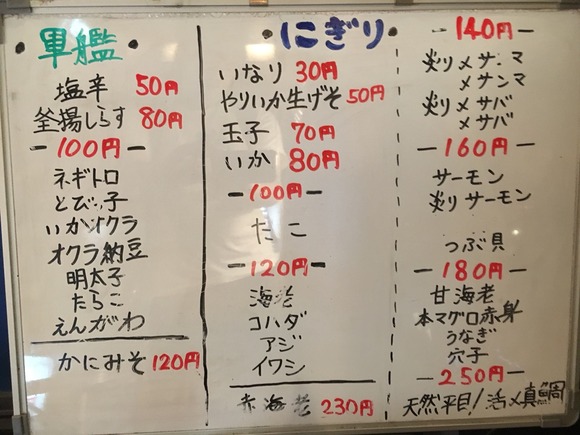 軍艦
塩辛 50円
釜揚しらす 80円
ー100円ー
ネギトロ
とびっ子
いかオクラ
オクラ納豆
明太子
たらこ
えんがわ
かにみそ 120円
にぎり
いなり 30円
やりいか生げそ 50円
玉子 70円
いか 80円
ー100円ー
たこ
ー120円ー
海老
コハダ
アジ
イワシ
赤海老 230円
ー140円ー
炙り〆サンマ
〆サンマ
炙り〆サバ
〆サバ
ー160円ー
サーモン
炙りサーモン
つぶ貝
ー180円ー
甘海老
本マグロ赤身
うなぎ
穴子
ー250円ー
天然平目!活〆真鯛